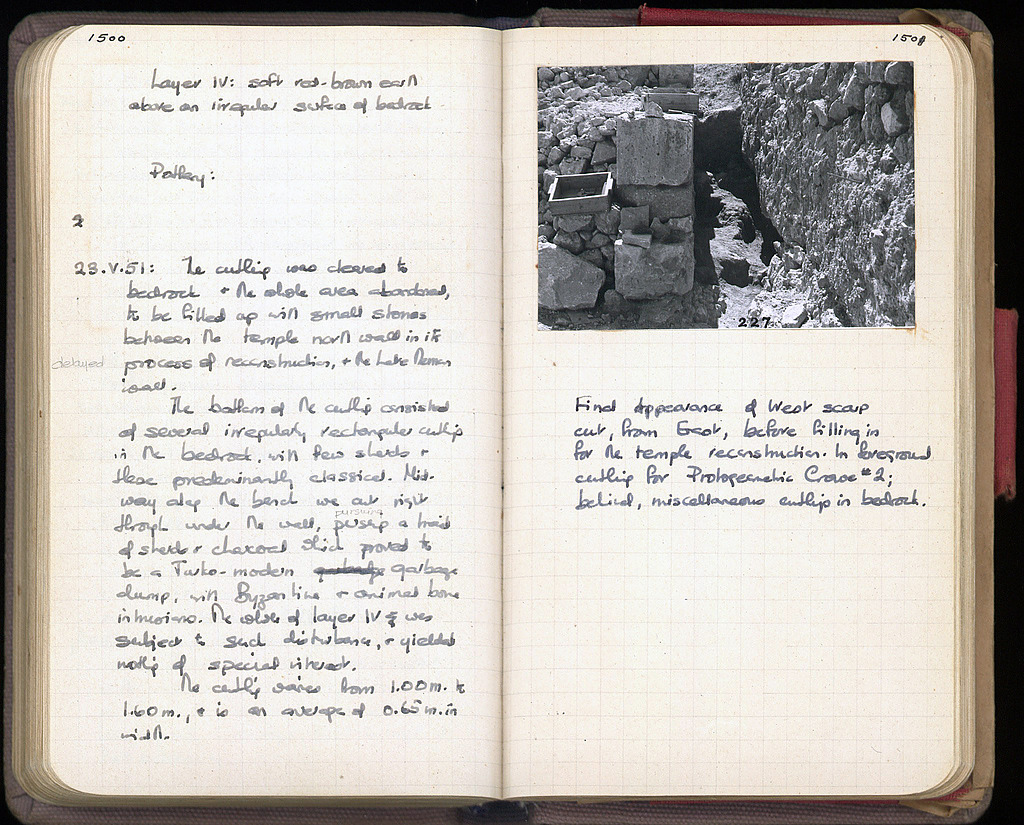 1500
Layer IV: soft red-brown earth
above an irregular surface of bedrock
Pottery:
2
23.V.51: The cutting was cleared to
bedrock + the whole area abandoned,
to be filled up with small stones
between the temple north wall in its
delayed
process of reconstruction, + the Late Roman
wall.
The bottom of the cutting consisted
of several irregularly rectangular cuttings
in the bedrock, with few sherds +
these predominantly classical. Mid-
way along the bench we cut right
pursuing
through under the wall, pursuing a trail
of sherds + charcoal which proved to
be a Turko-modern garbage garbage
dump, with Byzantine + animal bone
intrusions. The whole of layer IV was
subject to such disturbance, + yielded
nothing of special interest.
The cutting varies from 1.00 m. to
1.60 m., + is an average of 0.65 m. in
width.
1501
227
Final appearance of West scarp
cut, from East, before filling in
for the temple reconstruction. In foreground
cutting for Protogeometric Grave #2;
behind, miscellaneous cuttings in bedrock.